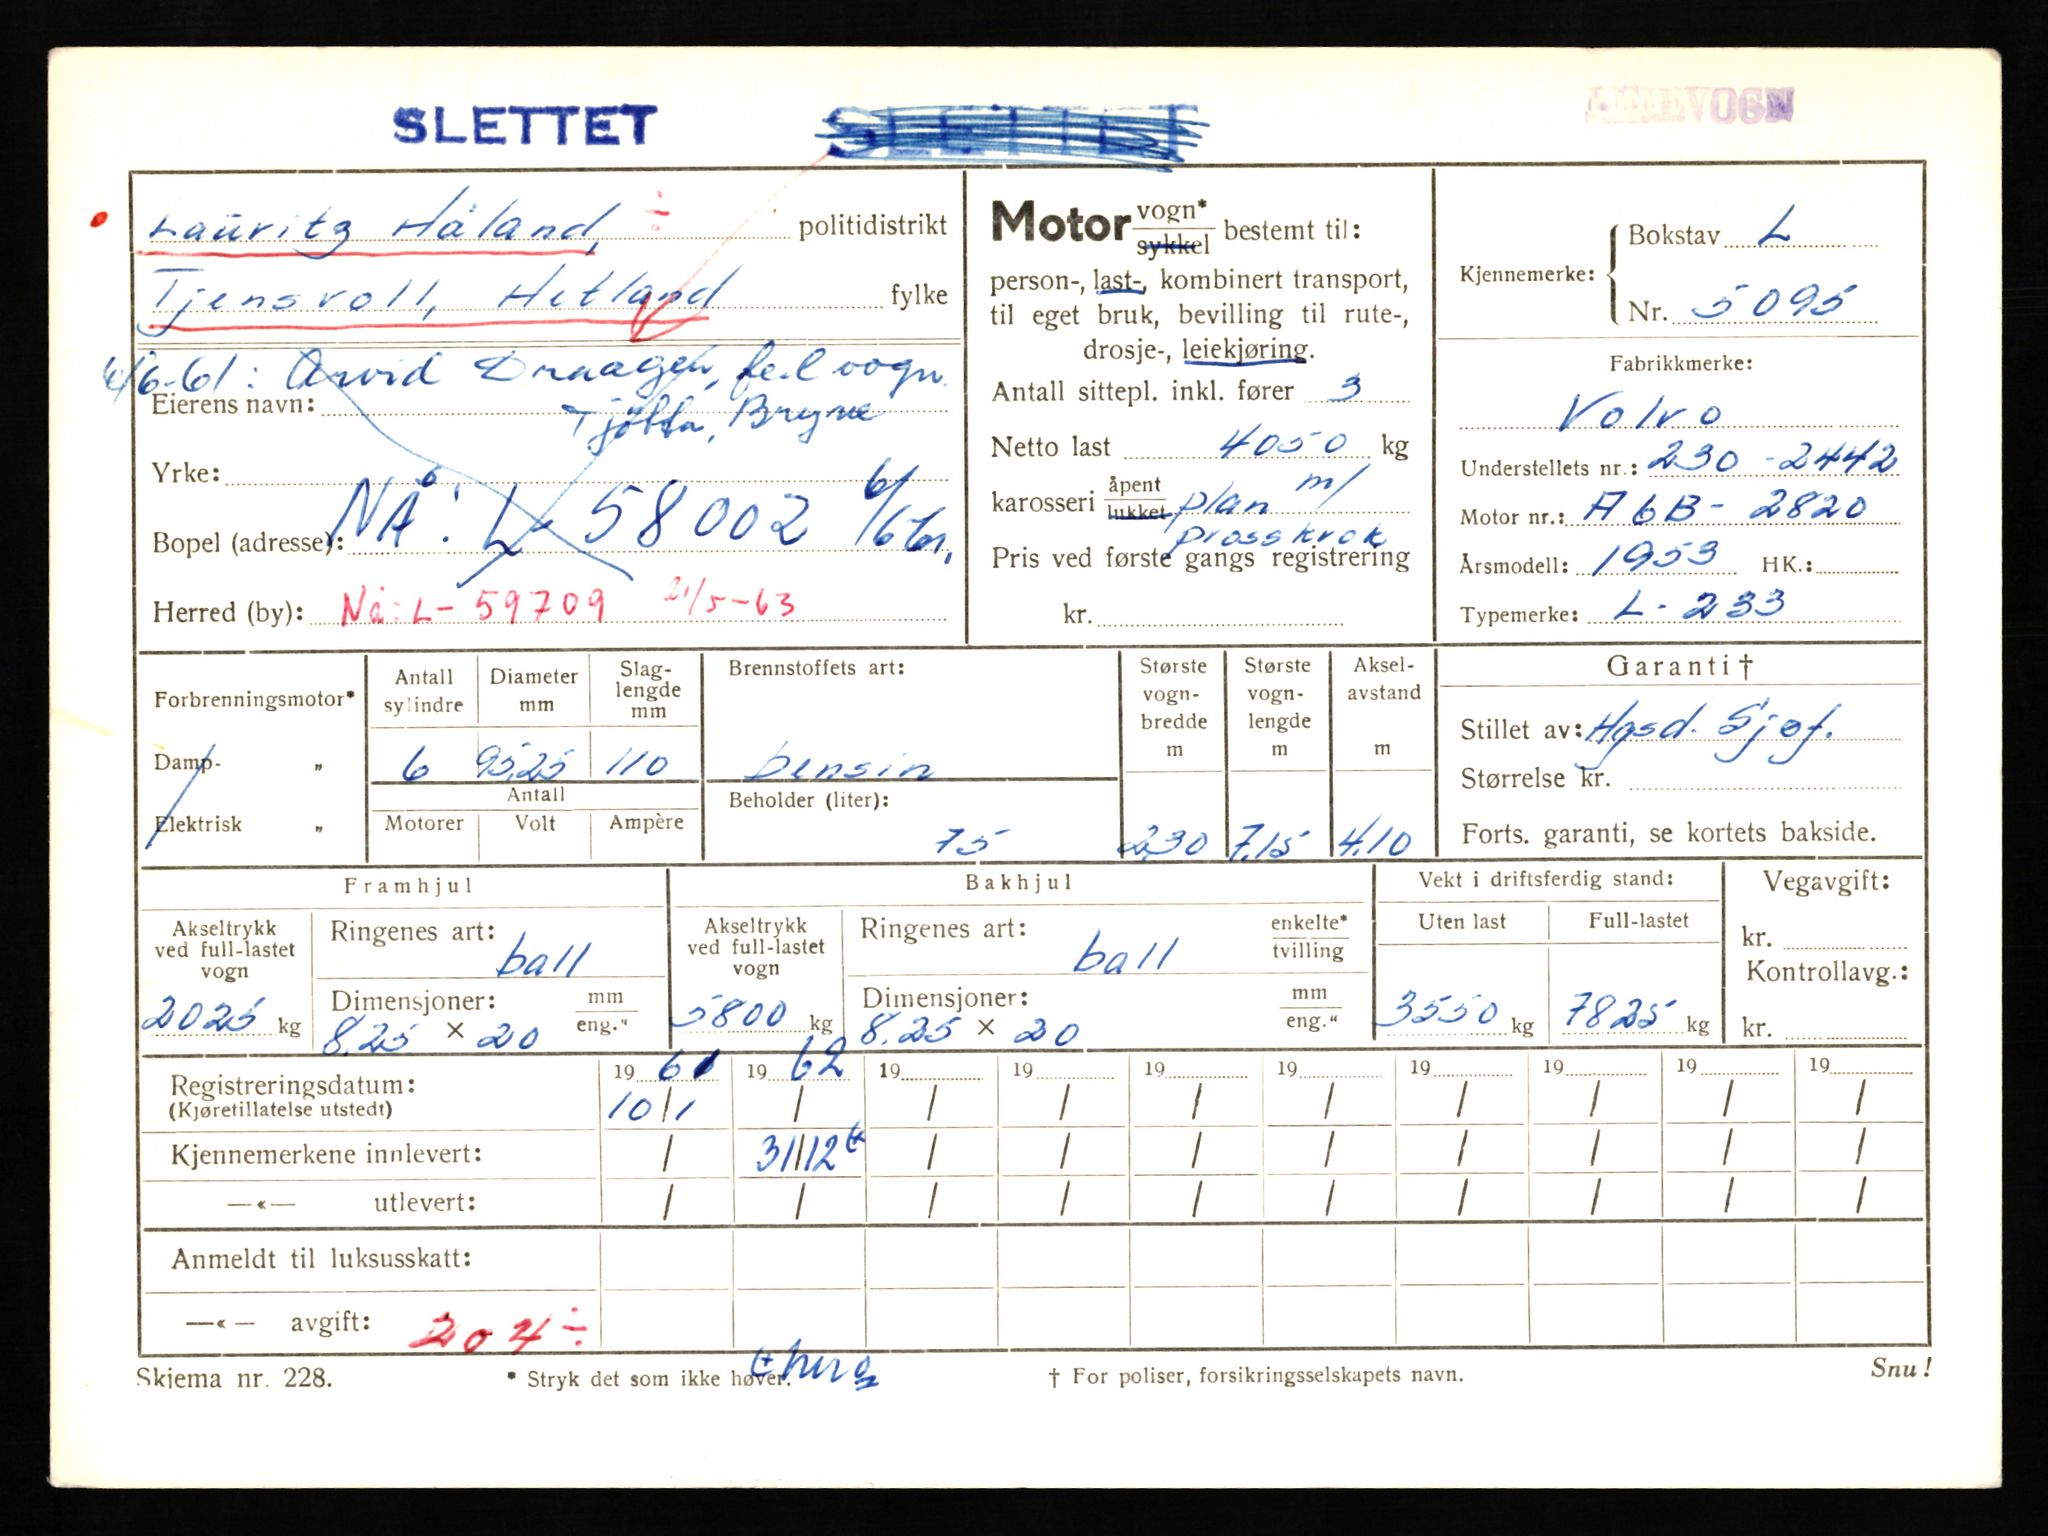 SLETTET SLETTET LEIEVOGN
Lauritz Håland, ÷ politidistrikt
Tjensvoll, Hetland fylke
6/6-61: Arvid Draagen, feil vogn.
Eierens navn: Tjøtta, Bryne
Yrke:
Bopel (adresse): NÅ: L- 58002 6/6 61.
Herred (by): Nå: L- 59709 21/5-63
Motor vogn* sykkel bestemt til:
person-, last-, kombinert transport,
til eget bruk, bevilling til rute-,
drosje-, leiekjøring.
Antall sittepl. inkl. fører 3
Netto last 4050 kg
karosseri åpent lukket plan m/
prosskrok
Pris ved første gangs registrering
kr.
Kjennemerke: Bokstav L
Nr. 5095
Fabrikkmerke:
Volvo
Understellets nr.: 230-2442
Motor nr.: A6B- 2820
Årsmodell: 1953 HK.:
Typemerke: L- 233
Forbrenningsmotor*
Damp- „
Elektrisk „
Antall sylindre Diameter mm Slag-lengde mm
6 95,25 110
Antall
Motorer Volt Ampère
Brennstoffets art:
bensin
Beholder (liter):
75
Største vogn-bredde m
2,30
Største vogn-lengde m
7,15
Aksel-avstand m
4.10
Garanti †
Stillet av: Hgsd. Sjøf.
Størrelse kr.
Forts. garanti, se kortets bakside.
Framhjul
Akseltrykk ved full-lastet vogn
2025 kg
Ringenes art: ball
Dimensjoner: mm eng."
8.25 × 20
Bakhjul
Akseltrykk ved full-lastet vogn
5800 kg
Ringenes art: ball enkelte* tvilling
Dimensjoner: mm eng."
8.25 × 20
Vekt i driftsferdig stand:
Uten last Full-lastet
3550 kg 7825 kg
Vegavgift:
kr.
Kontrollavg.:
kr.
Registreringsdatum: 19 61 19 62 19 19 19 19 19 19 19 19
(Kjøretillatelse utstedt) 10/1 / / / / / / / / /
Kjennemerkene innlevert: / 31/12 / / / / / / / /
—«— utlevert: / / / / / / / / / /
Anmeldt til luksusskatt:
—«— avgift: 204 ÷
Skjema nr. 228. * Stryk det som ikke høver. † For poliser, forsikringsselskapets navn. Snu!